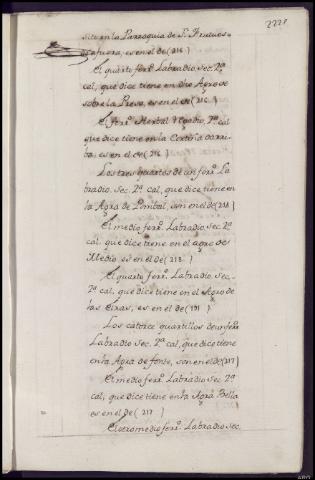 2221
sito en la Parroquia de Sn. Frutuoso
afuera, es en el de (216)
El quarto ferro. Labradio Sec. 2ª
cal, que dice tiene en dho Agro de
sobre la Presa, es en el de (216)
El ferro. Herbal Regadio, 2ª cal
que dice tiene en la Cortiña da arri
ba, es en el de (216)
Los tres quartos de un ferro. La
bradio Sec. 2ª cal, que dice tiene en
la Agra de Pombal, son en el de (218)
El medio ferro. Labradio Sec. 2ª
cal, que dice tiene en el agro de
Medio, es en el de (218)
El quarto ferro. Labradio Sec.
2ª cal, que dice tiene en el Agro de
las Eiras, es en el de (191)
Los catorce quartillos de un ferro.
Labradio Sec. 2ª cal, que dice tiene
en la Agra de fonte, son en el de (217)
El medio ferro. Labradio Sec. 2ª
cal, que dice tiene en la Agra Bella
es en el de (217)
El otro medio ferro. Labradio Sec.